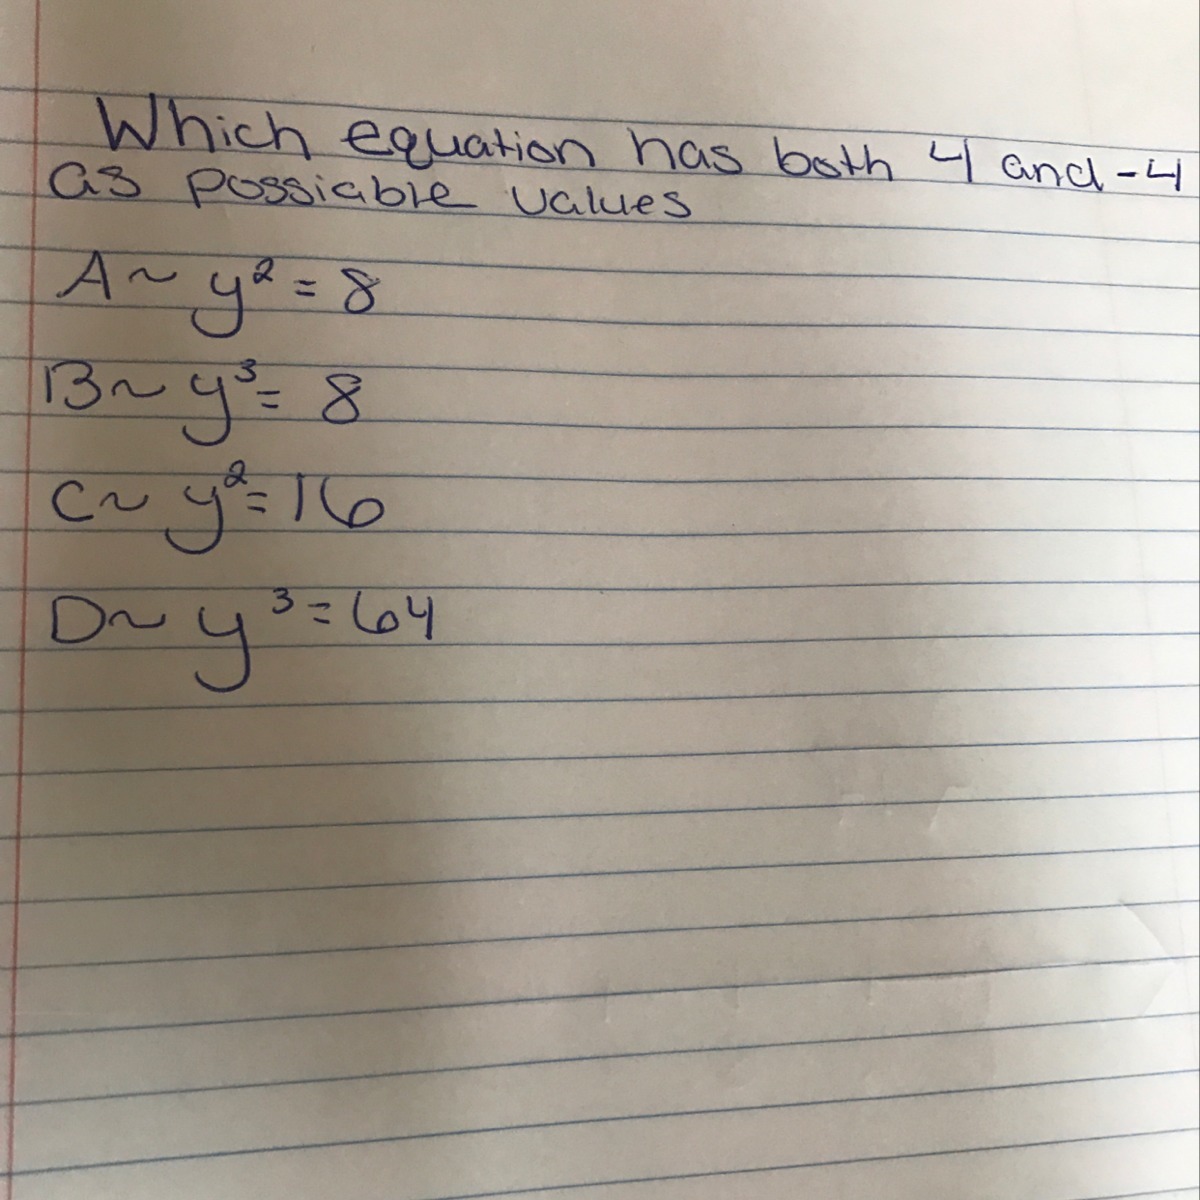 Which equation has both 4 and -4
as possiable values
A~ y² = 8
B~ y³ = 8
C~ y² = 16
D~ y³ = 64